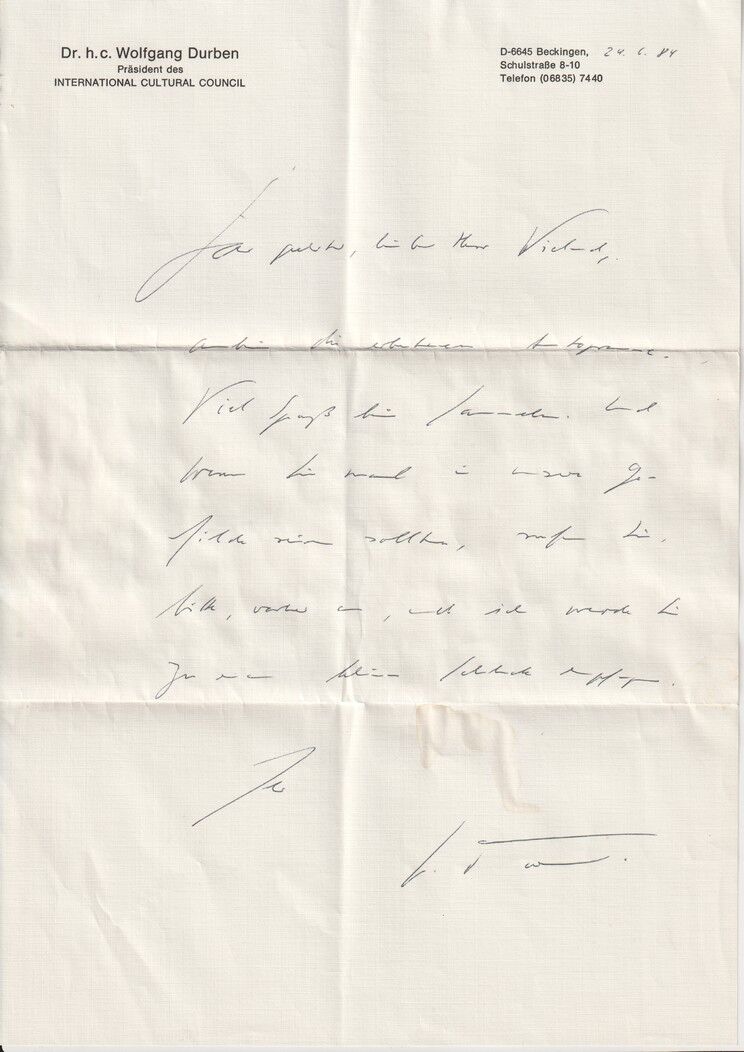 Dr. h.c. Wolfgang Durben
Präsident des
INTERNATIONAL CULTURAL COUNCIL
D-6645 Beckingen, 24. 6. 84
Schulstraße 8-10
Telefon (06835) 7440
Sehr geehrter, lieber Herr
anbei die erbetenen Autogramme.
Viel Spaß beim Sammeln. Und
wenn Sie mal in unsere Ge-
filde reisen sollten, rufen Sie,
bitte, vorher an, und ich werde Sie
zu einem kleinen Schluck empfangen.
Ihr